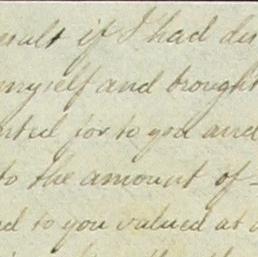 result if I had dis
myself and brought
nted for to you and
to the amount of
nd to you valued at